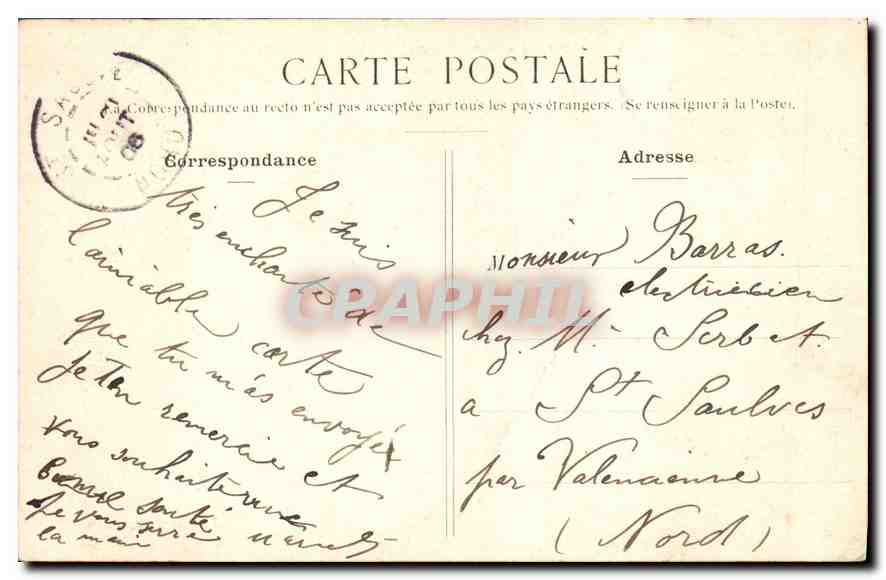 CARTE POSTALE
La Correspondance au recto n'est pas acceptée par tous les pays étrangers. (Se renseigner à la Poste).
Correspondance
Je suis
très enchanté de
l'aimable carte
que tu m'as envoyé
Je t'en remercie et
vous souhaite une
bonne santé
Je vous serre
la main
Adresse
Monsieur Barras.
electricien
chez M. Serbet.
a St Saulves
par Valencienne
(Nord)
ST SAULVE
21
AOUT
06
NORD
CPAPHIL